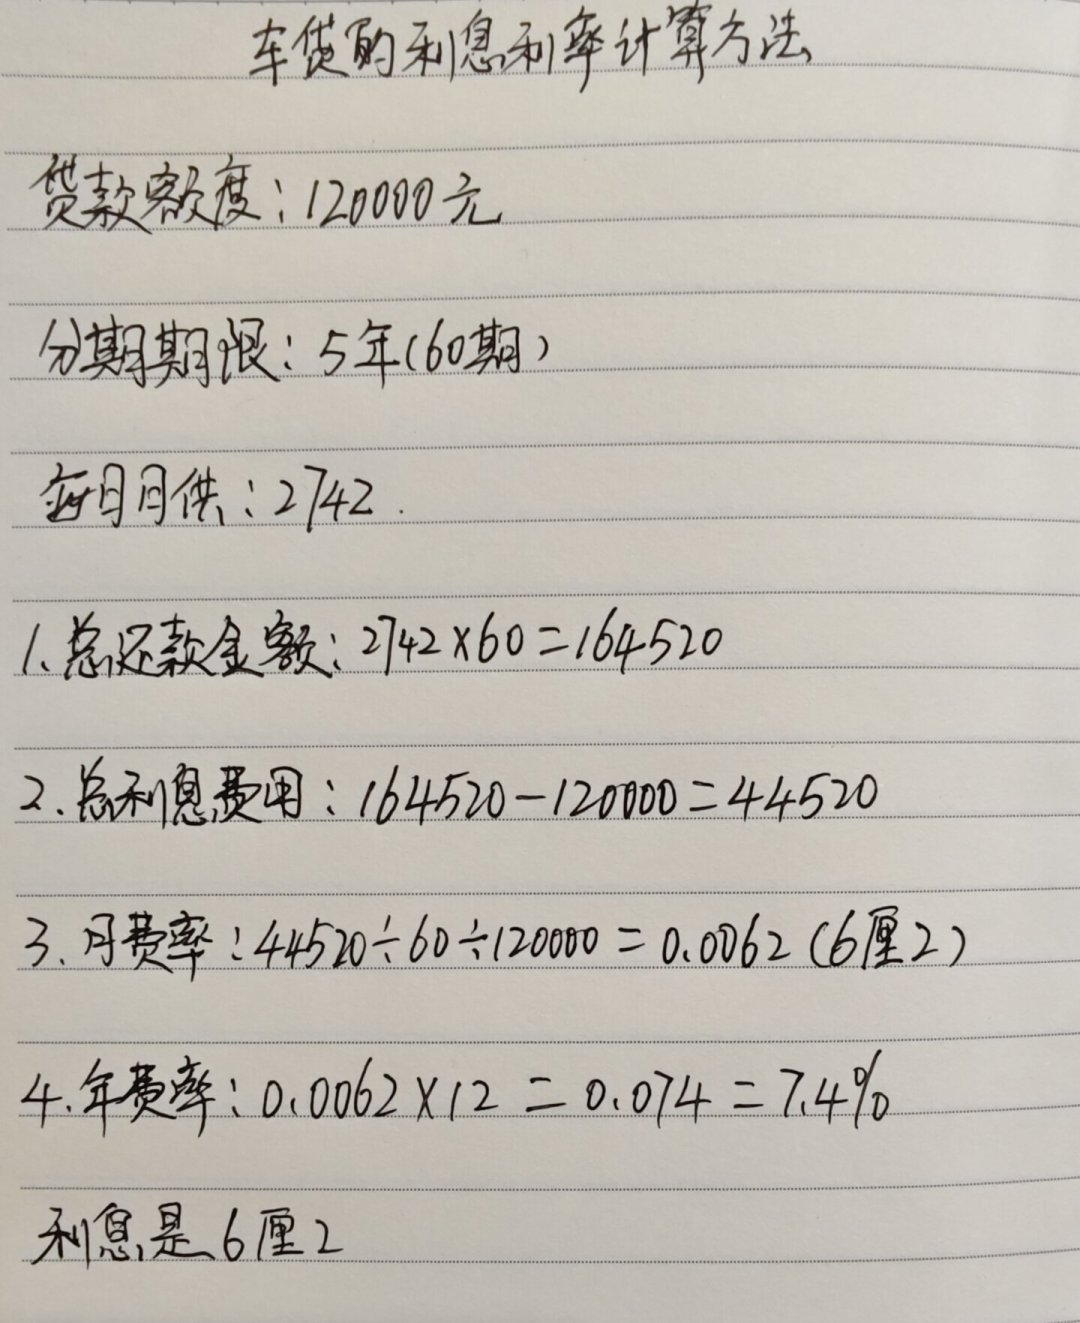 车贷的利息利率计算方法
贷款额度：120000元
分期期限：5年(60期)
每月月供：2742.
1.总还款金额：2742×60=164520
2.总利息费用：164520-120000=44520
3.月费率：44520÷60÷120000=0.0062(6厘2)
4.年费率：0.0062×12=0.074=7.4%
利息是6厘2